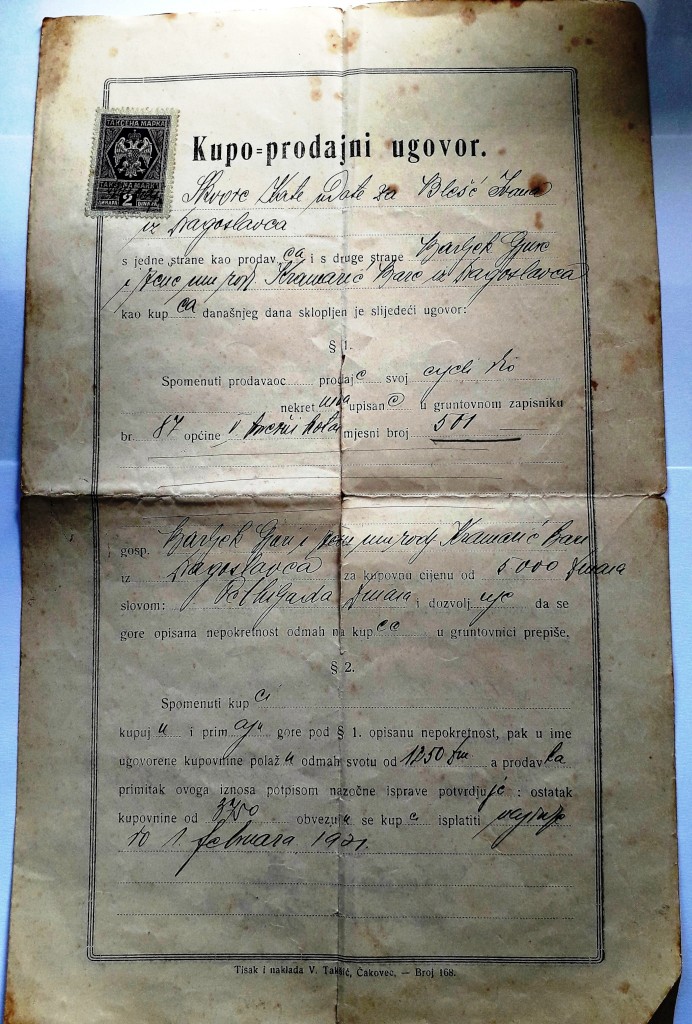 ТАКСЕНА МАРКА
2
Kupo=prodajni ugovor.
Škvorc Kate udate za Blešć Ivana
iz Dragoslavca
s jedne strane kao prodavca i s druge strane Barljek Gjure
i žene mu rodj Kramarić Bare iz Dragoslavca
kao kupca današnjeg dana sklopljen je slijedeći ugovor:
§ 1.
Spomenuti prodavaoc prodaje svoj cijeli dio
nekretnina upisane u gruntovnom zapisniku
br. 87 općine mjesni broj 501
gosp. Barljek Gjuri i ženi mu rodj Kramarić Bari
iz Dragoslavca za kupovnu cijenu od 5000 dinara
slovom: Pethiljada dinara i dozvoljuje da se
gore opisana nepokretnost odmah na kupce u gruntovnici prepiše.
§ 2.
Spomenuti kupci
kupuju i primaju gore pod § 1. opisanu nepokretnost, pak u ime
ugovorene kupovnine polažu odmah svotu od 1250 din a prodavka
primitak ovoga iznosa potpisom nazočne isprave potvrdjuje : ostatak
kupovnine od 3750 obvezuju se kupc isplatiti
do 1. februara 1931.
Tisak i naklada V. Takšić, Čakovec, — Broj 168.